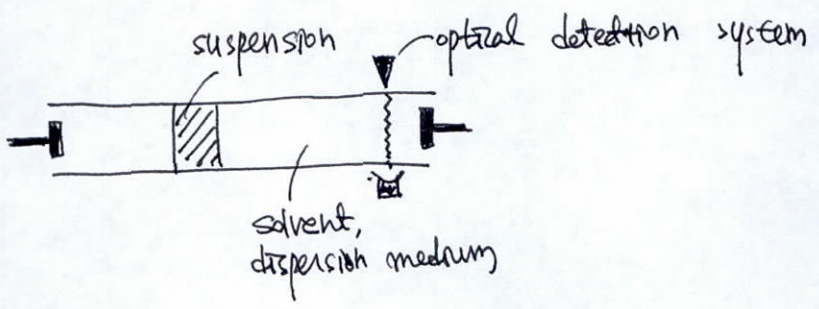 suspension
optical detection system
solvent,
dispersion medium